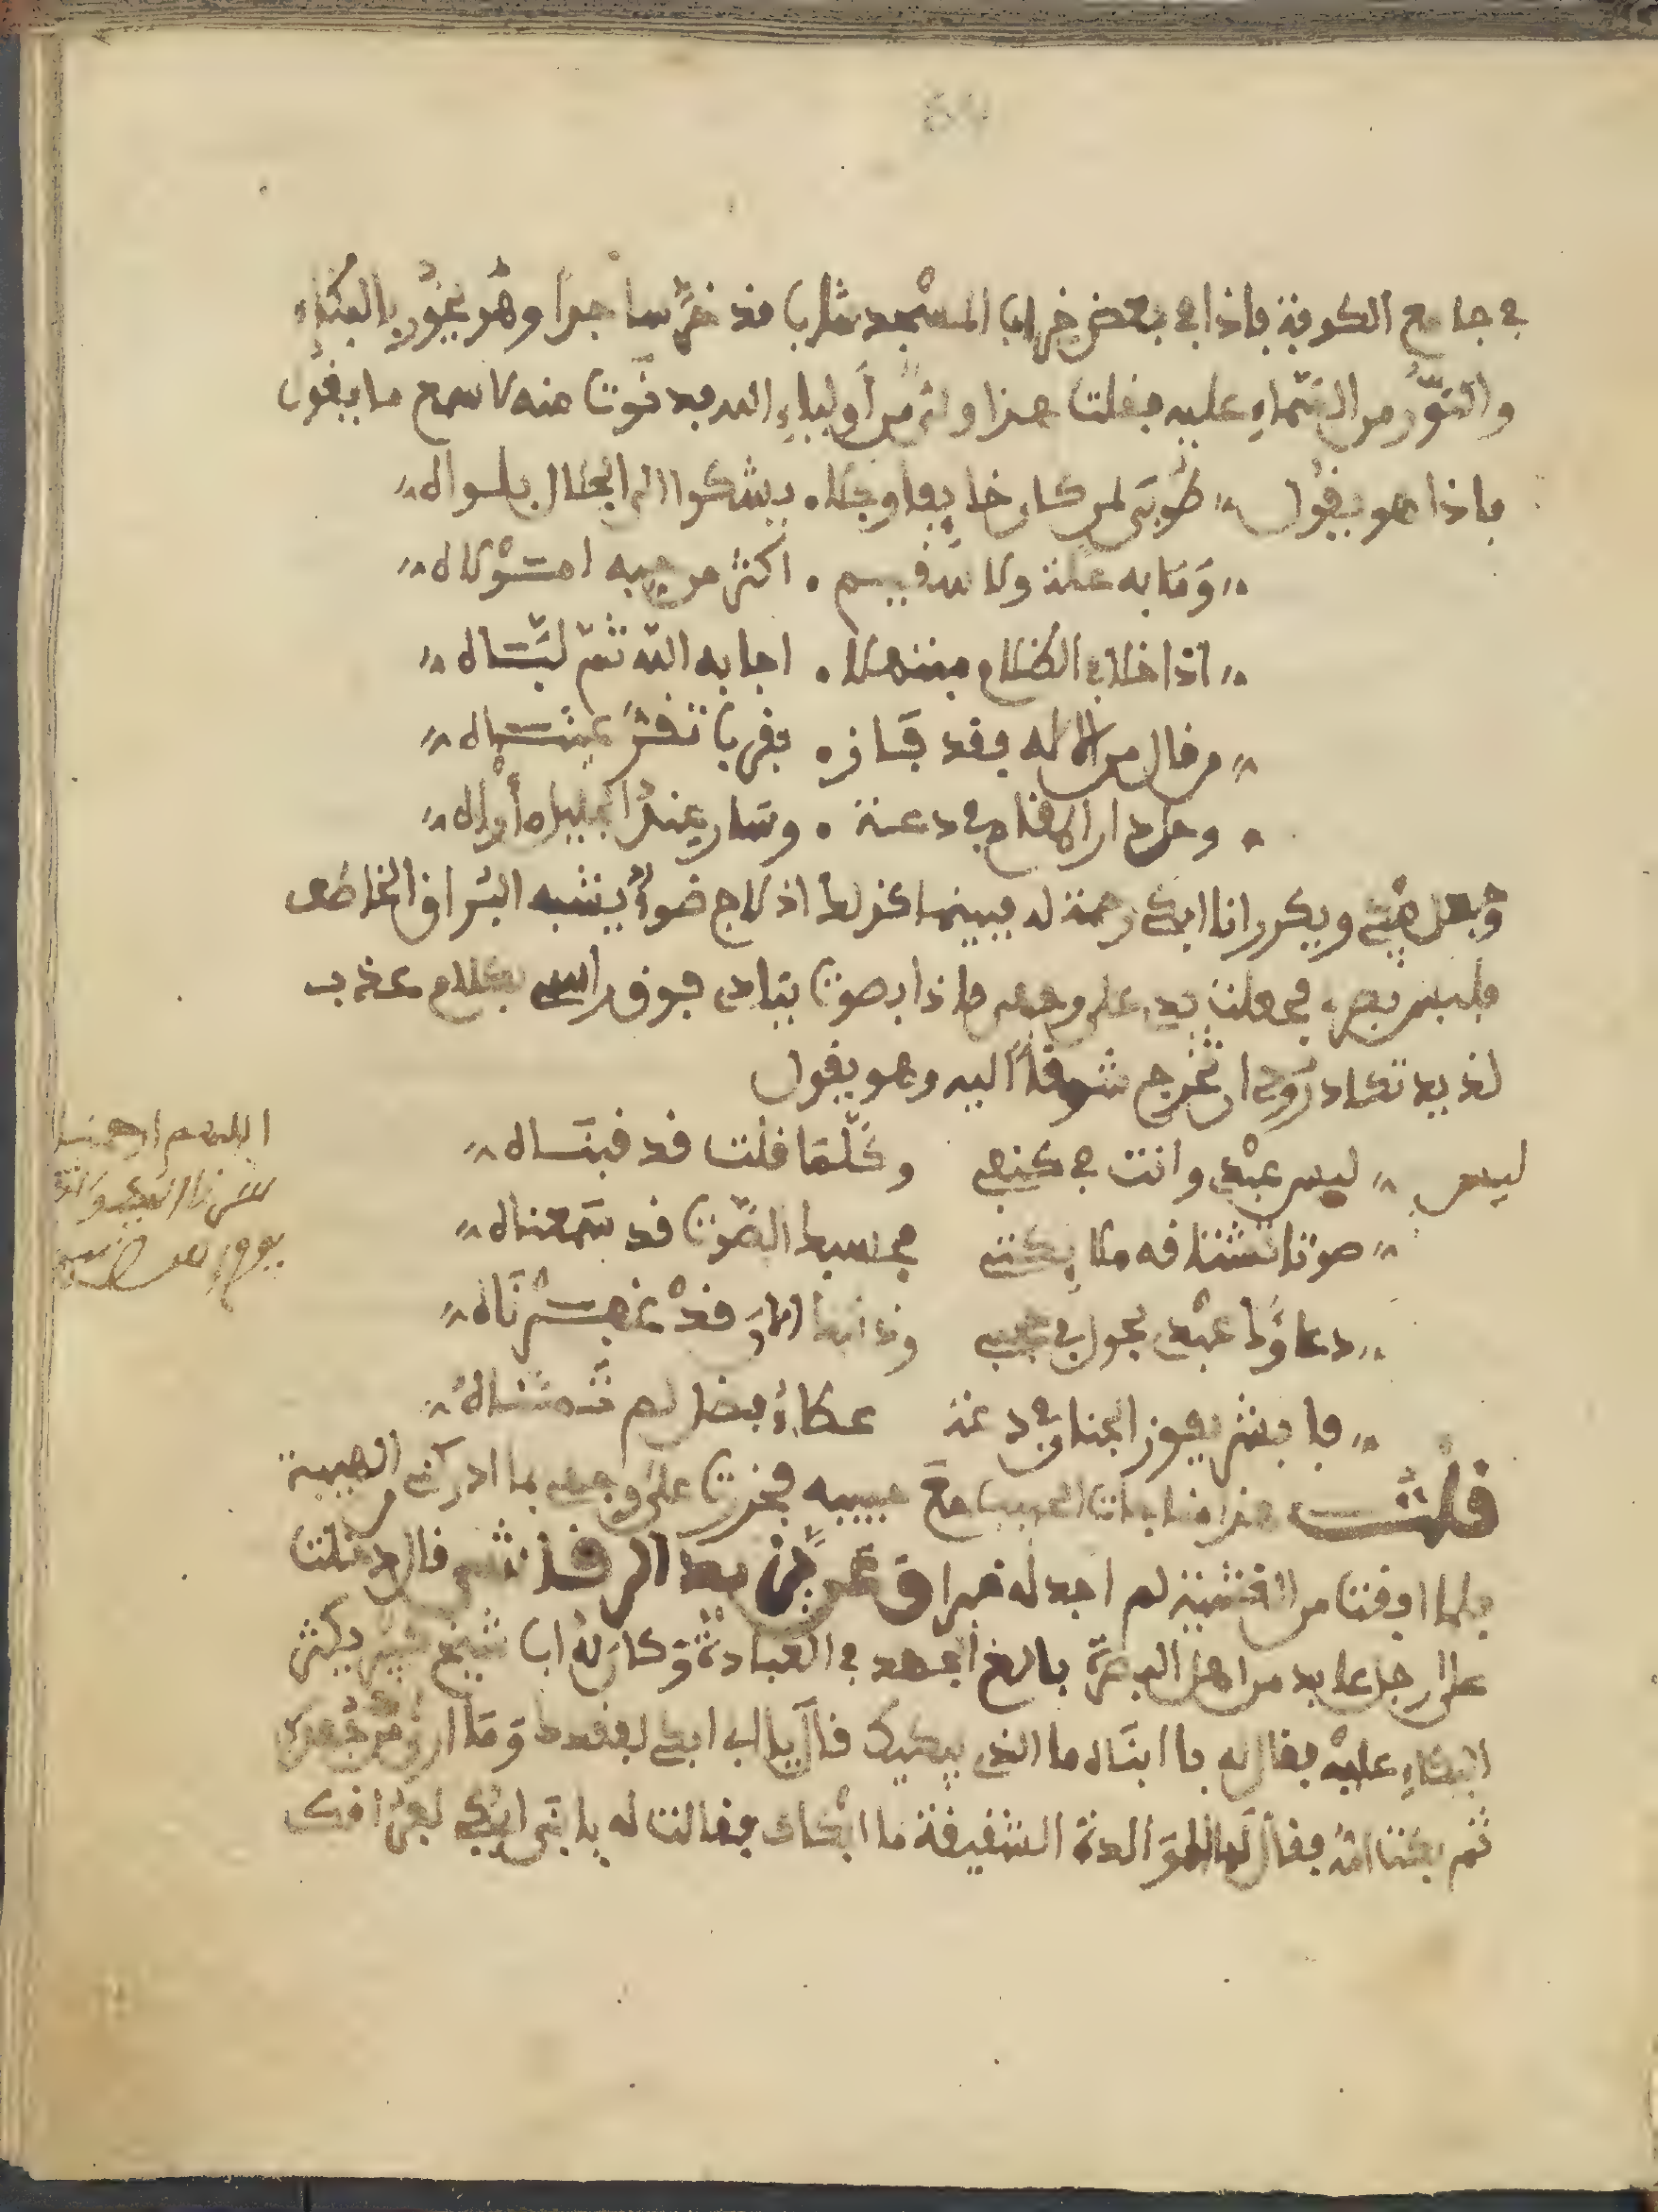 في جامع الكوفة فاذا في بعض خراب المسجد شاب قد خر ساجدا وهو يخور بالبكاء
والنور من السماء عليه فقلت هذا ولي من أولياء الله فدنوت منه لاسمع ما يقول
فاذا هو يقول طوبى لمن كان خايفا وجلا يشكوا الى ذي الجلال بلواه
وما به علة ولا سقيم اكثر من حبه لمولاه
اذا خلا في الظلام مبتهلا اجابه الله ثم لباه
من نال من الاله فقد فاز بقرب تقر عيناه
وحل دار المقام في دعة وصار عند الجليل مأواه
وجعل يبكي ويكرر وانا ابكي رحمة له فبينما كذلك اذ لاح ضوء يشبه البراق الخاطف
فلبس بصري فجعلت يدي على وجهي فاذا بصوت ينادي فوق راسي بكلام عذب
لذيد تكاد روحي ان تخرج شوقا اليه وهو يقول
ليس لبيك عبدي وانت في كنفي وكلما قلت قد قبناه
صوتك تشتاقه ملايكتي فحسبك الصوت قد سمعناه
دعاؤك عبدي يجول في حجبي وذنبك الان قد غفرناه
فابشر بفوز الجنان في دعة عطاء فضل لم تمناه
قلت هذا مناجات الحبيب مع حبيبه فخررت على وجهي مما ادركني من الهيبة
فلما افقت من الغشية لم اجد له خبرا وعن يزيد الرقاشي قال دخلت
على رجل عابد من اهل البصرة بالغ الجهد في العبادة وكان له اب شيخ كبير يكثر
البكاء عليه فقال له يا ابتاه ما الذي يبكيك قال يا بني ابكي لفقدك وما ارى من جهدك
ثم بكت امه فقال لها ايتها الوالدة الشفيقة ما ابكاك فقالت له يا بني ابكي لفراقك
اللهم ارحمنا